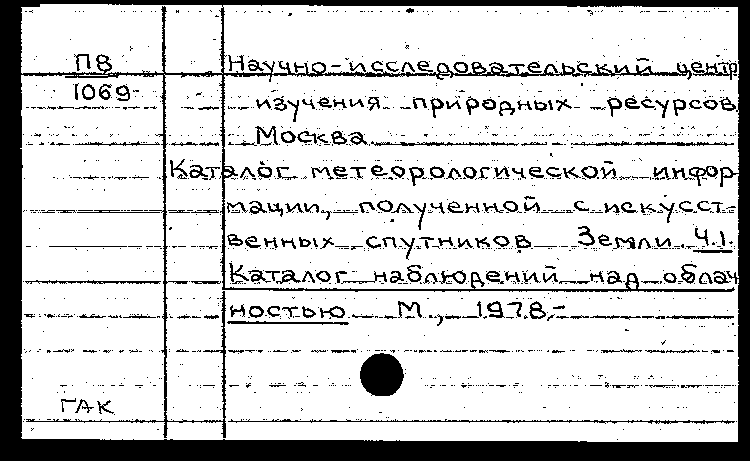 П8
1069
Научно-исследовательский центр
изучения природных ресурсов
Москва.
Каталог метеорологической инфор-
мации, полученной с искусст-
венных спутников Земли. Ч.1.
Каталог наблюдений над облач
ностью М., 1978,-
ГАК